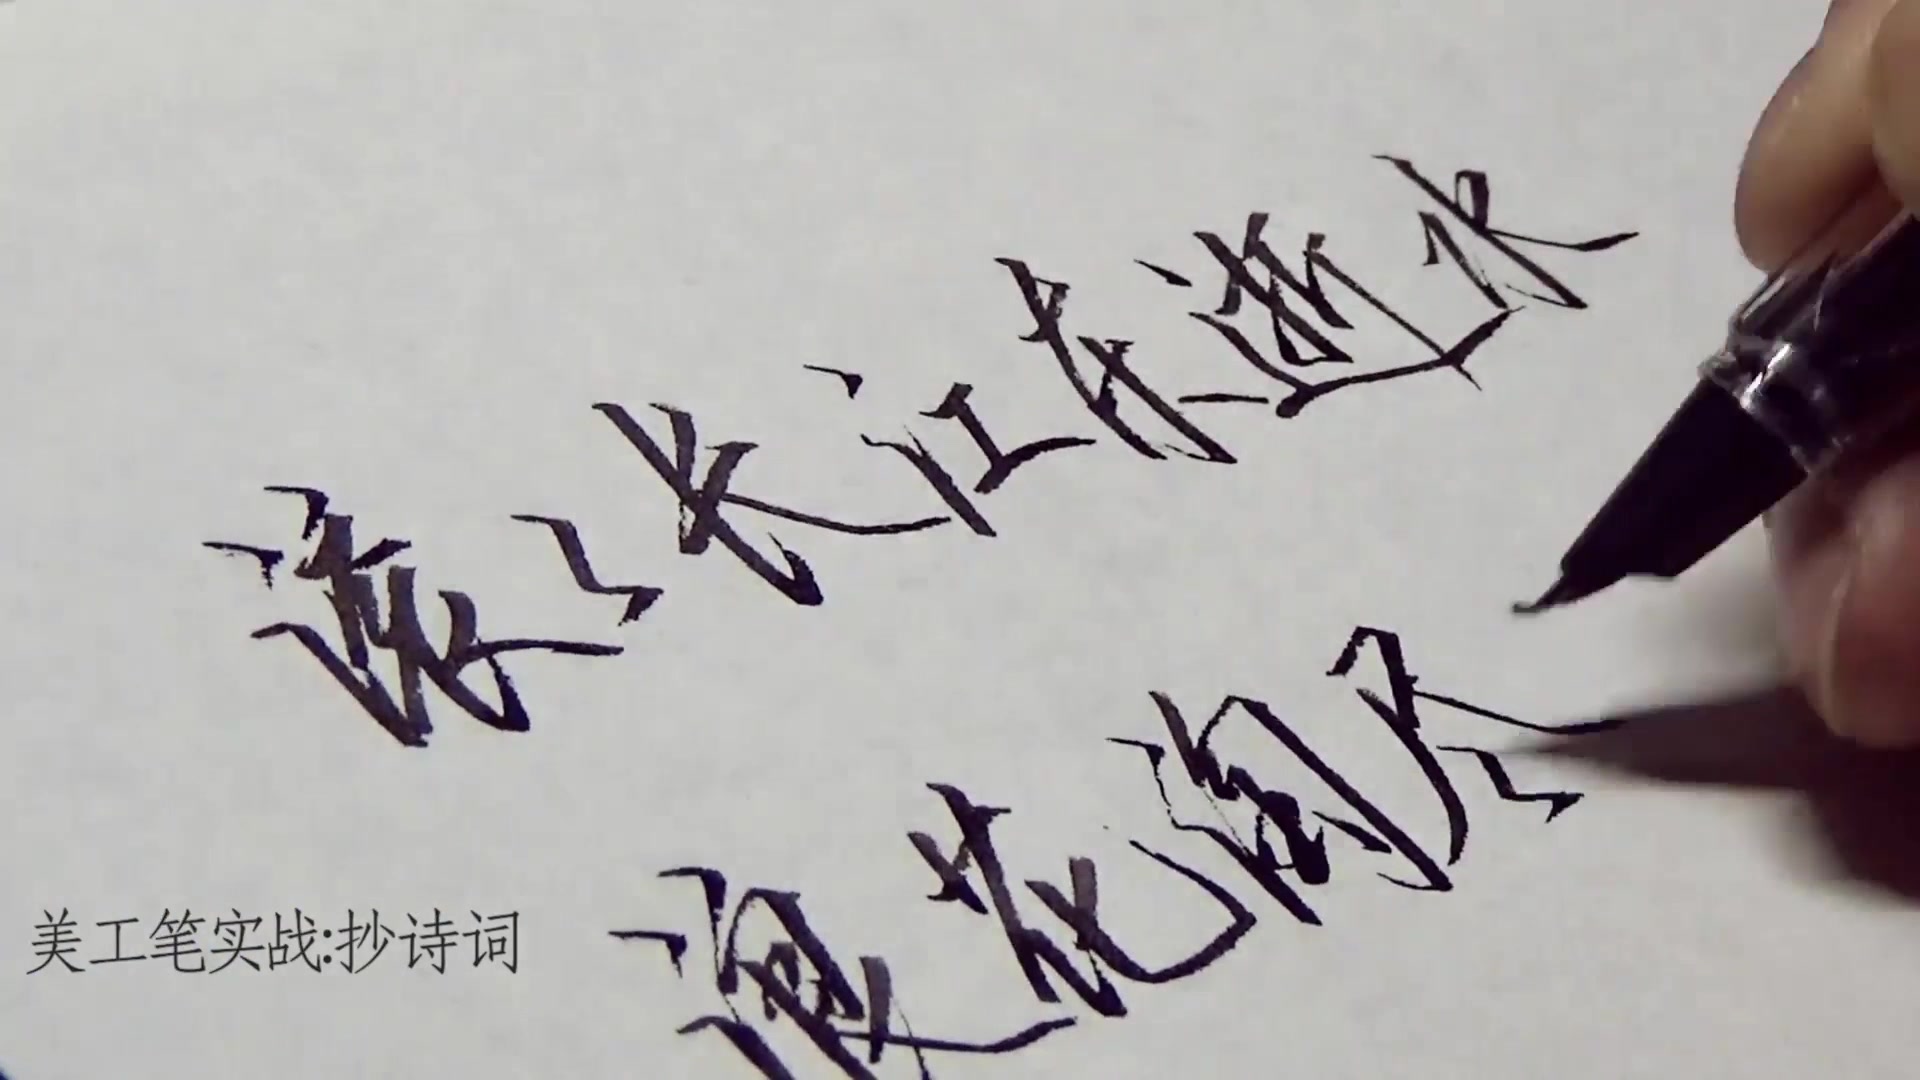 滚〻长江东逝水
浪花淘尽
美工笔实战:抄诗词